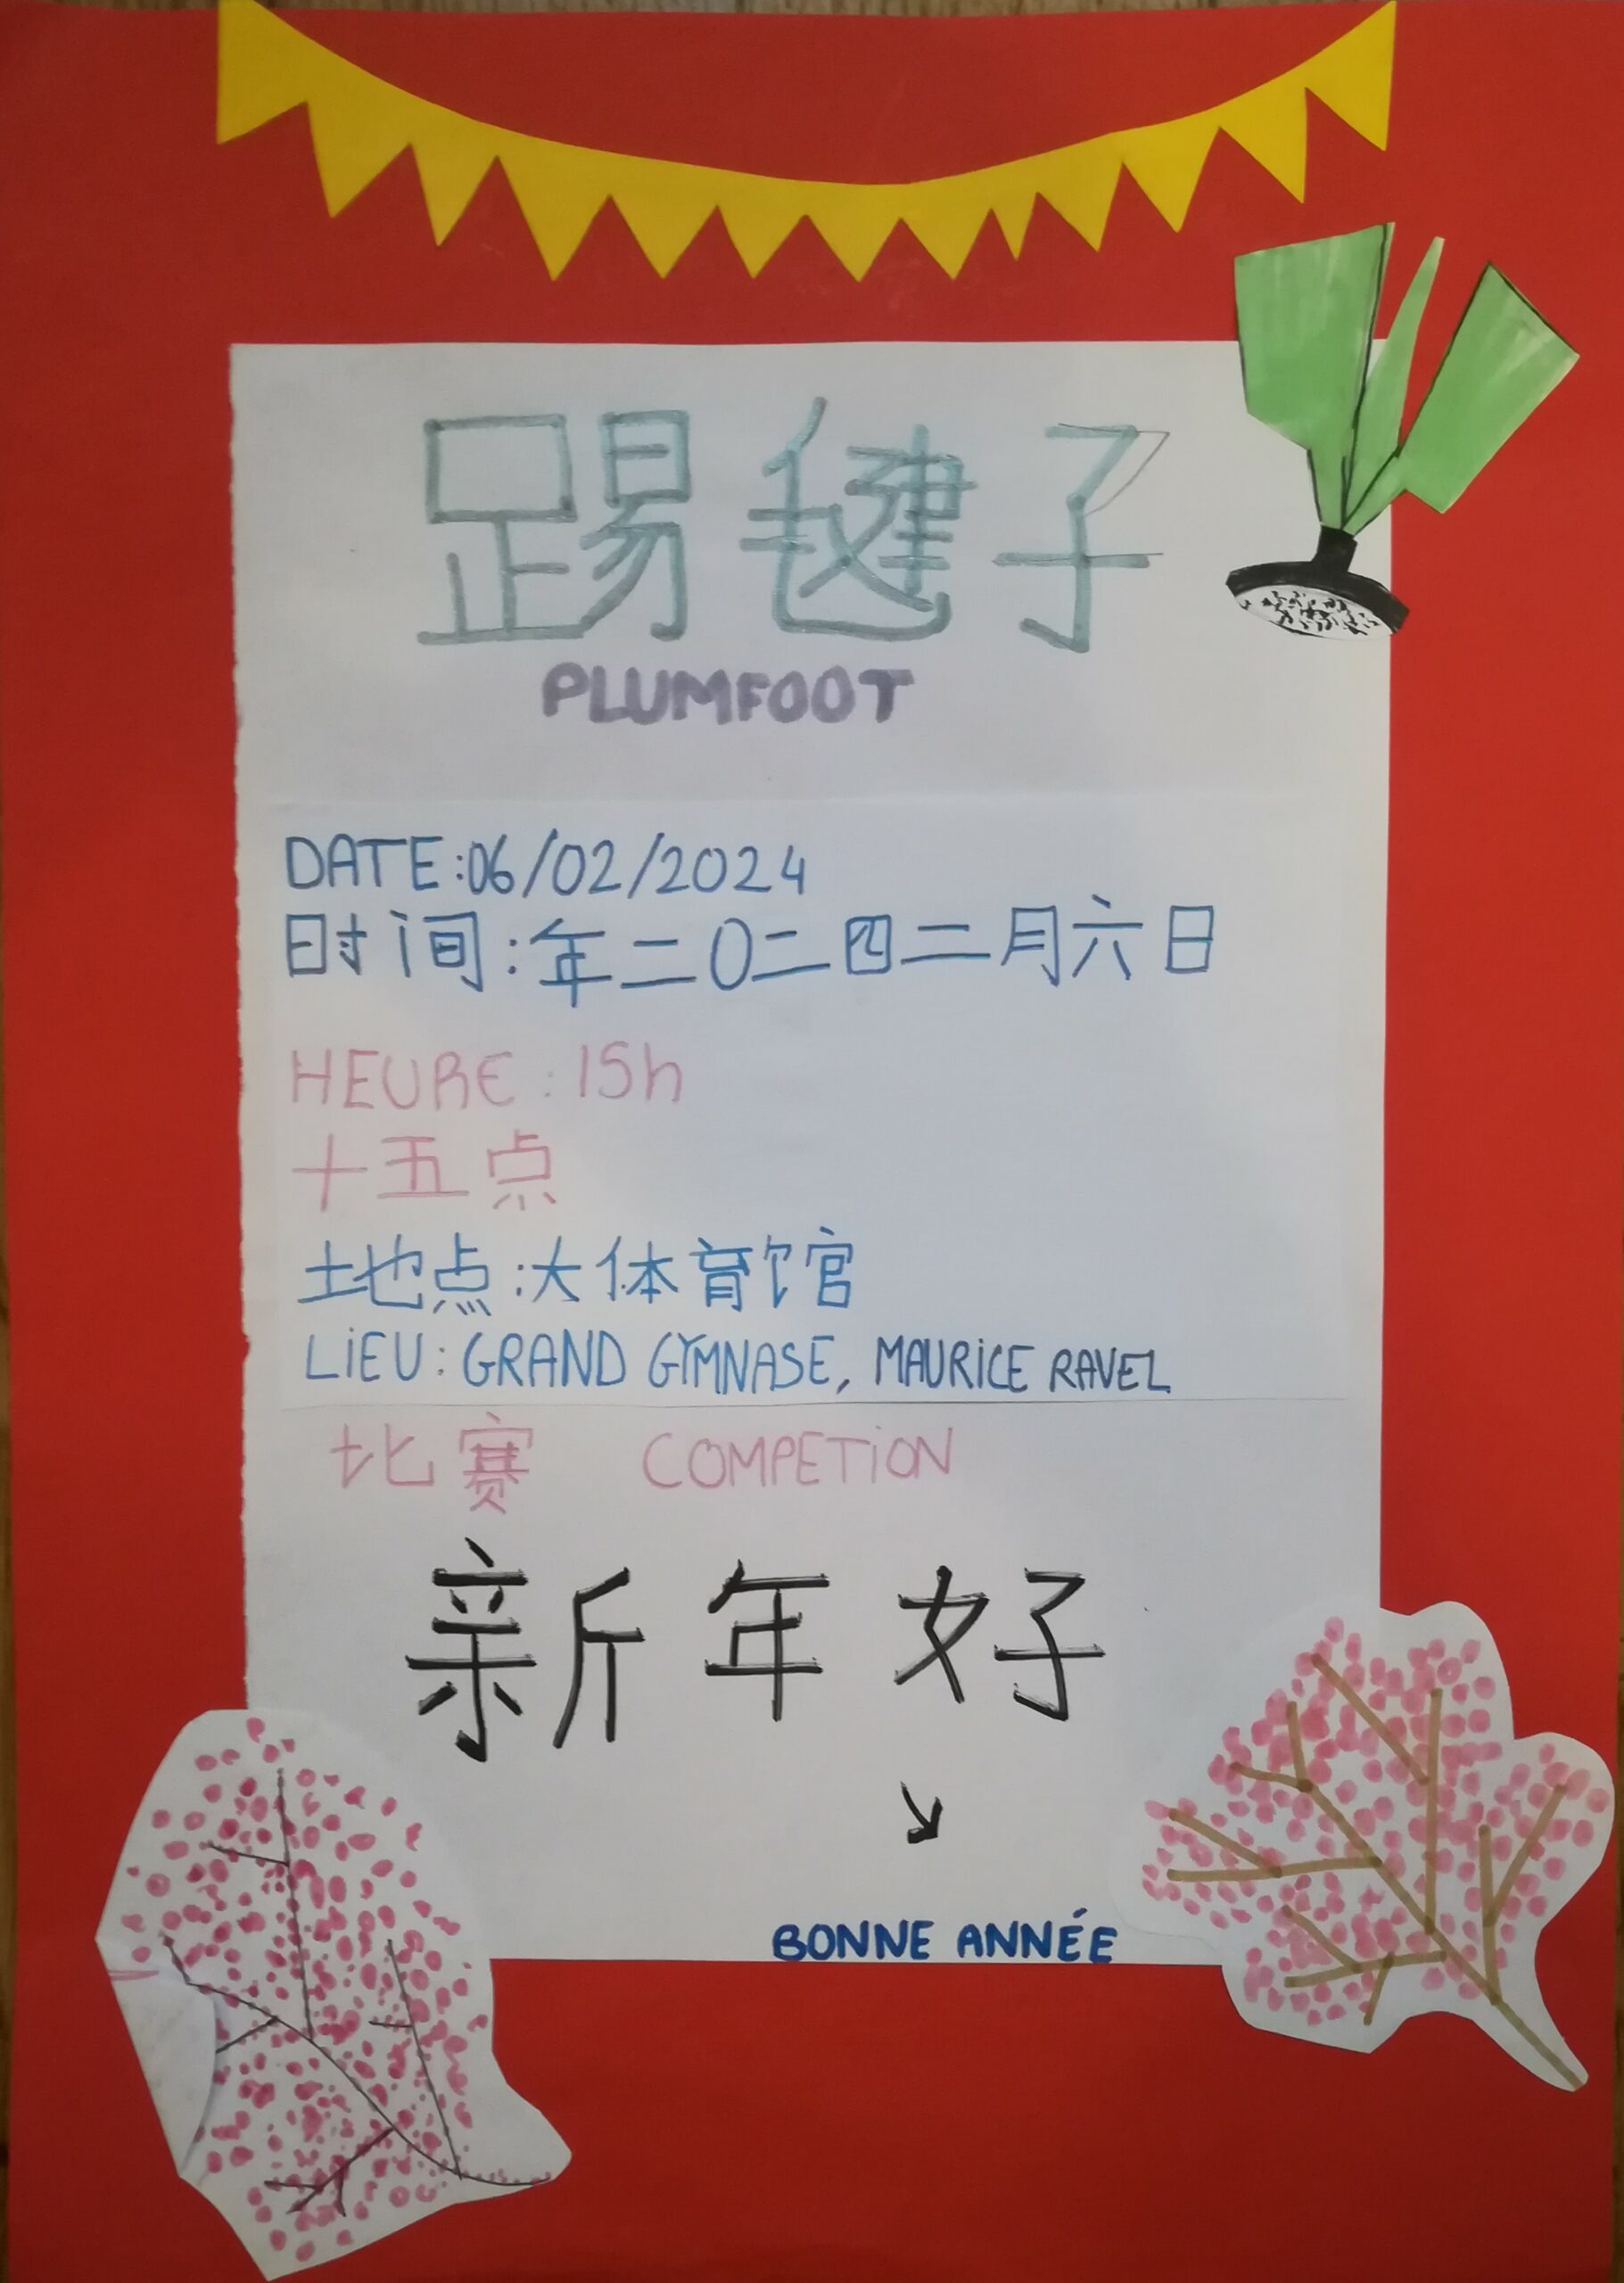 踢毽子
PLUMFOOT
DATE:06/02/2024
时间:年二0二四二月六日
HEURE:15h
十五点
地点:大体育馆
LIEU: GRAND GYMNASE, MAURICE RAVEL
比赛 COMPETION
新年好
BONNE ANNÉE